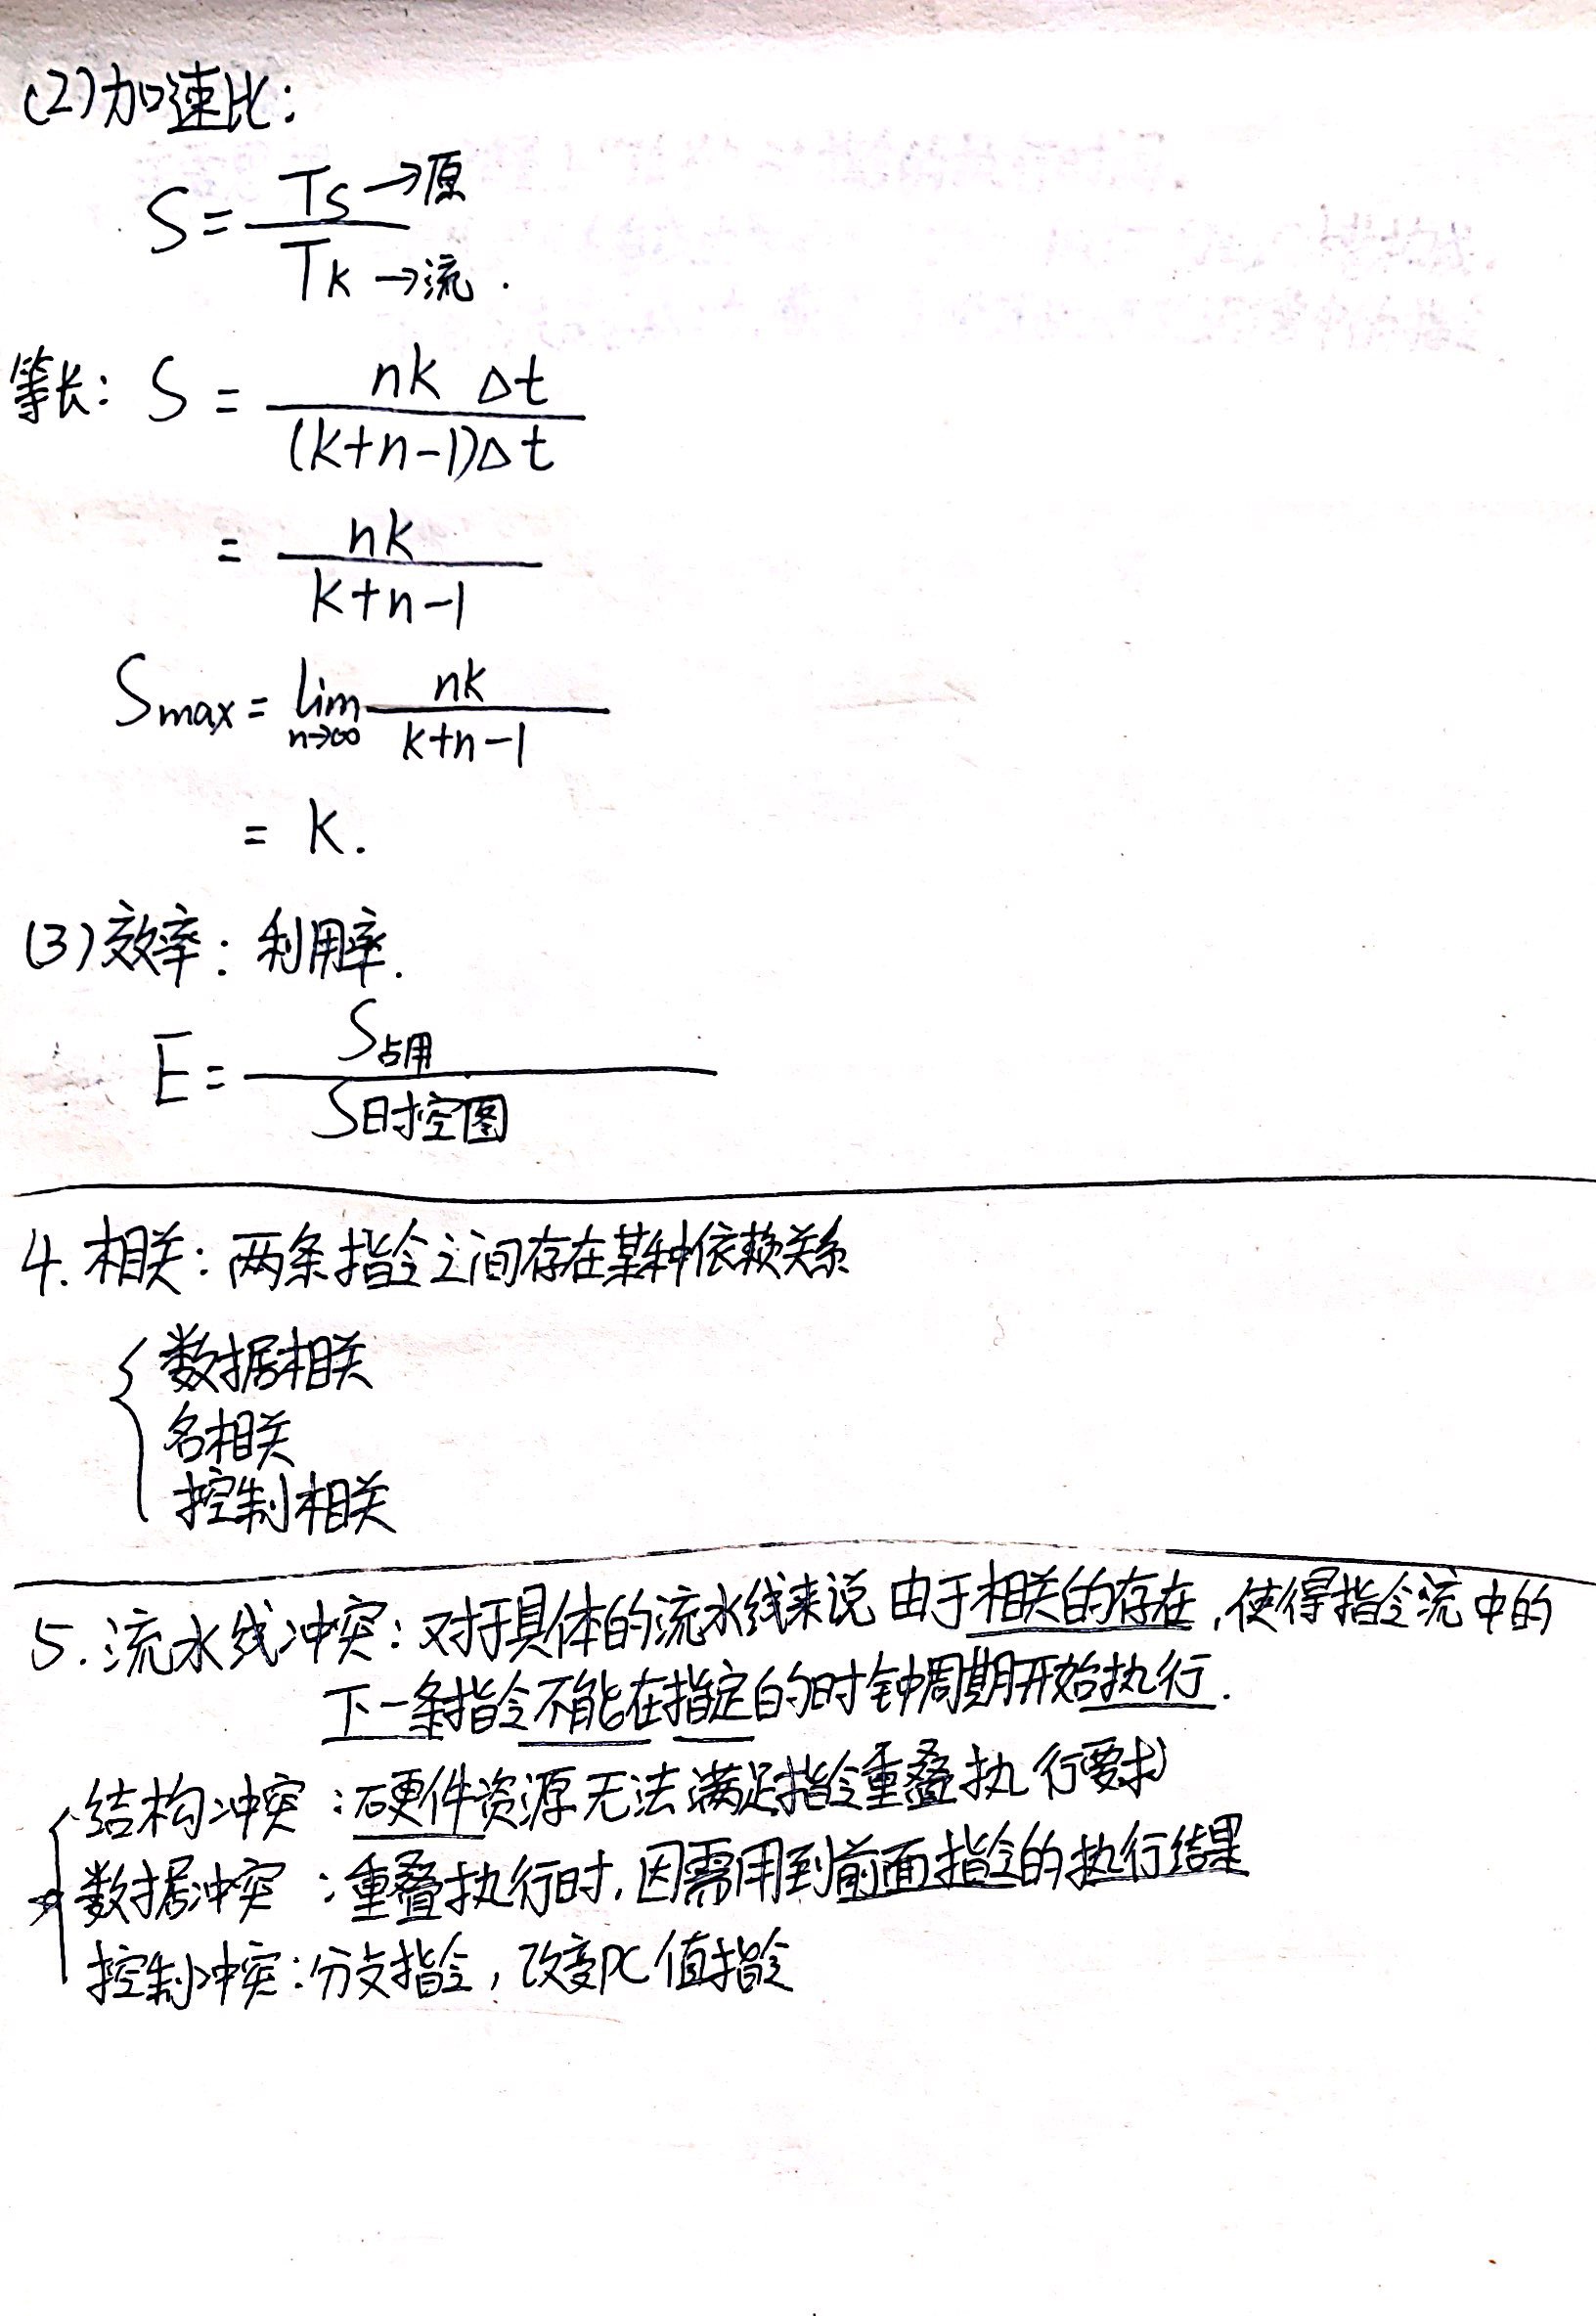 (2)加速比:
S = Ts→原 / Tk→流.
等长: S = nk Δt / (k+n-1)Δt
= nk / k+n-1
Smax = lim n→∞ nk / k+n-1
= k.
(3)效率: 利用率.
E = S占用 / S时空图
4. 相关: 两条指令之间存在某种依赖关系
{ 数据相关
名相关
控制相关
5. 流水线冲突: 对于具体的流水线来说 由于相关的存在, 使得指令流中的
下一条指令不能在指定的时钟周期开始执行.
{ 结构冲突: 硬件资源无法满足指令重叠执行要求
数据冲突: 重叠执行时, 因需用到前面指令的执行结果
控制冲突: 分支指令, 改变PC值指令